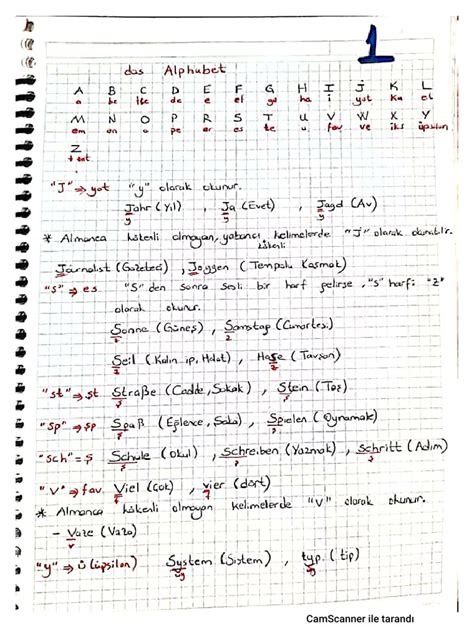 1
das Alphabet
A B C D E F G H I J K L
a be tse de e ef ge ha i yot ka el
M N O P R S T U V W X Y
em en o pe er es te u fav ve iks üpsilon
Z
tset
"J" ⇒ yot "y" olarak okunur.
Jahr (Yıl) , Ja (Evet) , Jagd (Av)
y y y
* Almanca kökenli olmayan, yabancı kökenli kelimelerde "J" olarak okunur.
Journalist (Gazeteci) , Joggen (Tempolu Koşmak)
"S" ⇒ es "S"den sonra sesli bir harf gelirse, "s" harfi "z"
olarak okunur.
Sonne (Güneş) , Samstag (Cumartesi)
z z
Seil (Kalın ip, Halat) , Hase (Tavşan)
z z
"st" ⇒ şt Straße (Cadde, Sokak) , Stein (Taş)
ş ş
"sp" ⇒ şp Spaß (Eğlence, Şaka) , Spielen (Oynamak)
ş ş
"sch" = ş Schule (okul) , schreiben (Yazmak) , Schritt (Adım)
ş ş ş
"V" ⇒ fav Viel (Çok) , vier (dört)
f f
* Almanca kökenli olmayan kelimelerde "V" olarak okunur.
- Vaze (Vazo)
v
"y" ⇒ ü (üpsilon) System (Sistem) , typ. (tip)
CamScanner ile tarandı